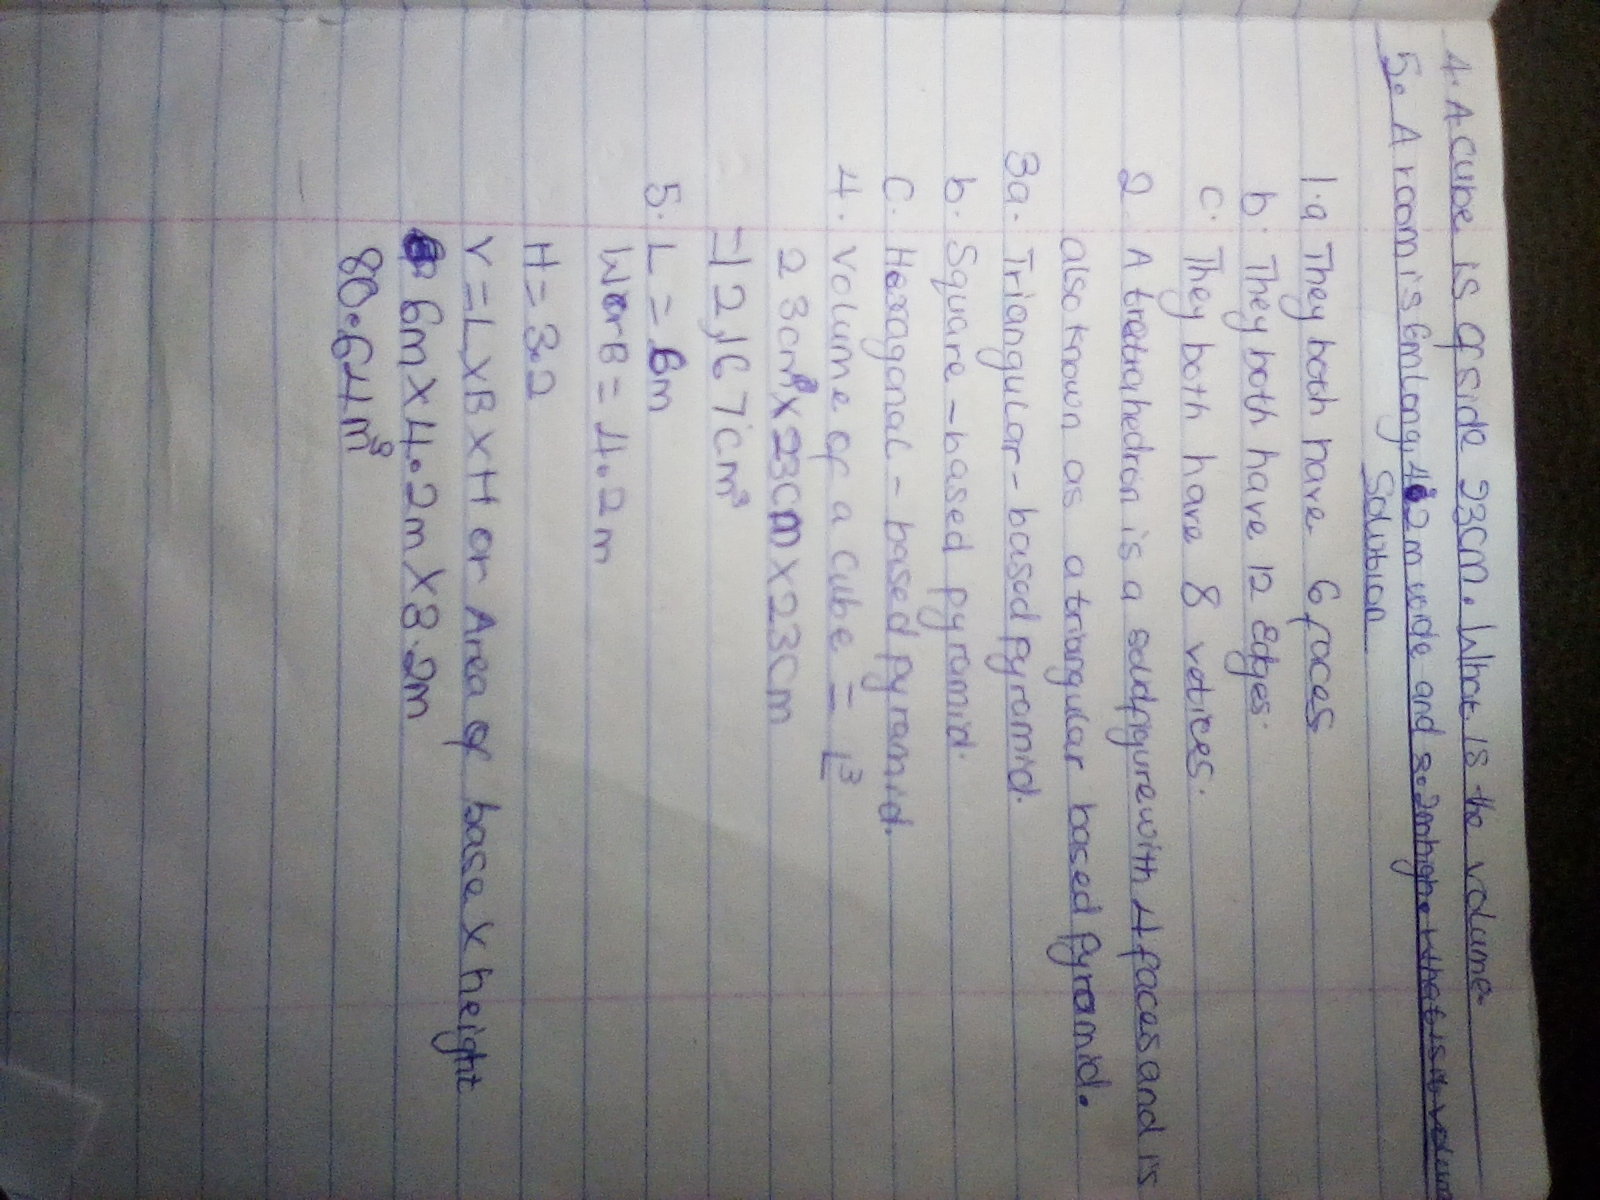 4. A cube is of side 23cm. What is the volume
5. A room is 6m long, 4.2m wide and 3.2m high. what is it volum
Solution
1.a They both have 6 faces
b. They both have 12 Edges.
c. They both have 8 vetices.
2. A tretrahedron is a solid figure with 4 faces and is
also known as a triangular based pyramid.
3a. Triangular-based pyramid.
b. Square-based pyramid.
C. Hexagonal-based pyramid.
4. Volume of a cube = L³
23cm x 23cm x 23cm
= 12,167cm³
5. L = 6m
W or B = 4.2m
H = 3.2
V = L x B x H or Area of base x height
6m x 4.2m x 3.2m
80.64m³